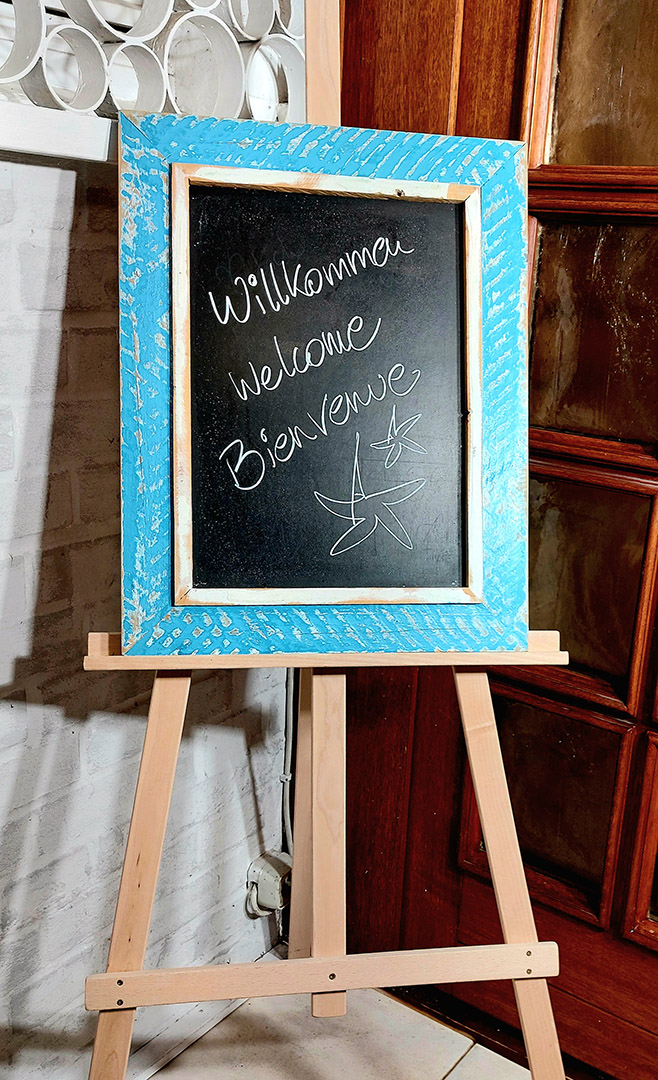 Willkommen
Welcome
Bienvenue